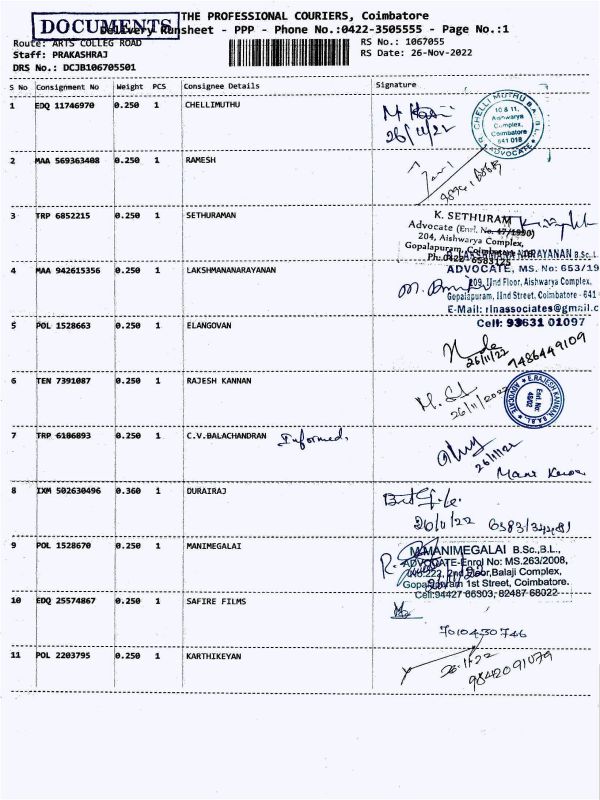 DOCUMENTS THE PROFESSIONAL COURIERS, Coimbatore
Delivery Runsheet - PPP - Phone No.:0422-3505555 - Page No.:1
Route: ARTS COLLEG ROAD RS No.: 1067055
Staff: PRAKASHRAJ RS Date: 26-Nov-2022
DRS No.: DCJB106705501
S No Consignment No Weight PCS Consignee Details Signature
1 EDQ 11746970 0.250 1 CHELLIMUTHU
26/11/22
R. CHELLIMUTHU B.A., B.L., ADVOCATE
10 & 11,
Aishwarya
Complex,
Coimbatore
641 018
2 MAA 569363408 0.250 1 RAMESH
3 TRP 6852215 0.250 1 SETHURAMAN
K. SETHURAM
Advocate (Enrl. No. 47/1990)
204, Aishwarya Complex,
Gopalapuram, Coimbatore
Ph: 0422 - 6583125
4 MAA 942615356 0.250 1 LAKSHMANANARAYANAN
NARAYANAN B.Sc.,
ADVOCATE, MS. No: 653/19
209, IInd Floor, Aishwarya Complex,
Gopalapuram, IInd Street, Coimbatore - 641
E-Mail: rlnassociates@gmail.c
Cell: 93631 01097
5 POL 1528663 0.250 1 ELANGOVAN
26/11/22 7486449109
6 TEN 7391087 0.250 1 RAJESH KANNAN
26/11/2022
E.RAJESH KANNAN B.A.BL. ADVOCATE
Enrl. No:
7 TRP 6106893 0.250 1 C.V.BALACHANDRAN Informed,
26/11/22
8 IXM 502630496 0.360 1 DURAIRAJ
26/11/22
9 POL 1528670 0.250 1 MANIMEGALAI
M.MANIMEGALAI B.Sc.,B.L.,
ADVOCATE-Enrol No: MS.263/2008,
No.222, 2nd Floor,Balaji Complex,
Gopalapuram 1st Street, Coimbatore.
Cell:94427 66303, 82487 68022
10 EDQ 25574867 0.250 1 SAFIRE FILMS
7010430746
11 POL 2203795 0.250 1 KARTHIKEYAN
26-11-22
9842091079